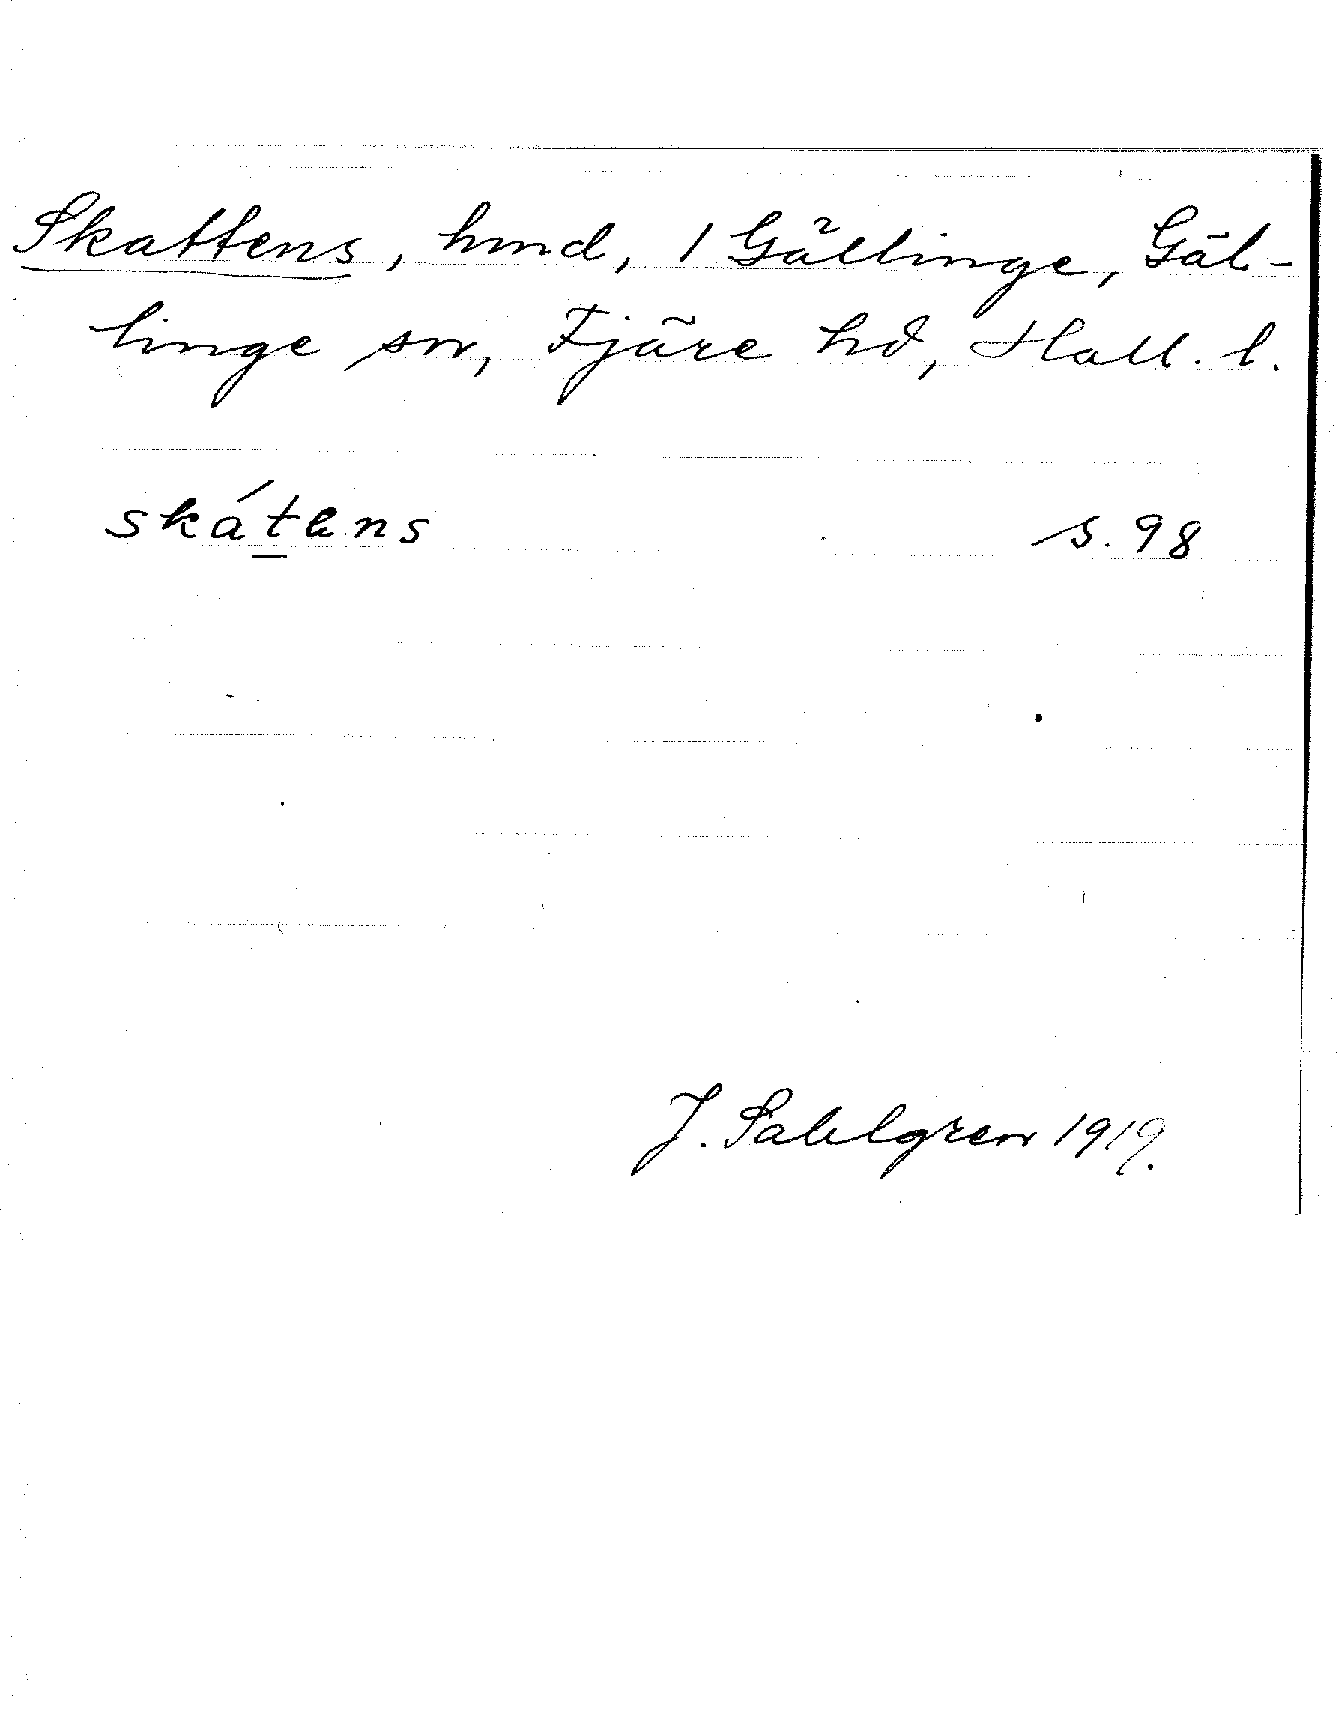 Skattens, hmd, 1 Gällinge, Gäl-
linge sn, Fjäre hd, Hall. l.
skát̲ens s. 98
J. Sahlgren 1919.